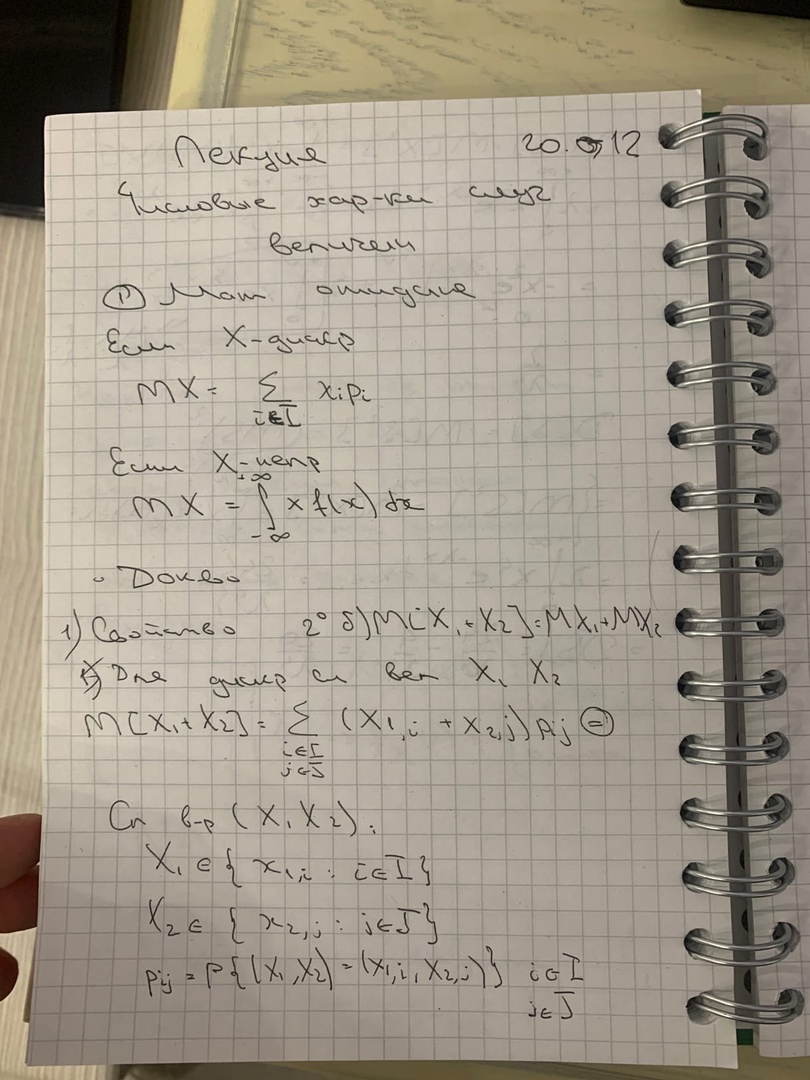 Лекция 20.12
Числовые хар-ки случ
величин
① Мат ожидание
Если X-дискр
MX = ∑ xipi
i∈I
Если X-непр
+∞
MX = ∫ x f(x) dx
-∞
Док-во
1) Свойство 2° б) M[X₁+X₂]=MX₁+MX₂
Для дискр сл вел X₁ X₂
M[X₁+X₂] = ∑ (X₁,i + X₂,j) pij ⊜
i∈I
j∈J
Сл в-р (X₁ X₂):
X₁ ∈ { x₁,i : i∈I}
X₂ ∈ { x₂,j : j∈J}
pij = P{(X₁,X₂) = (X₁,i, X₂,j)} i∈I
j∈J